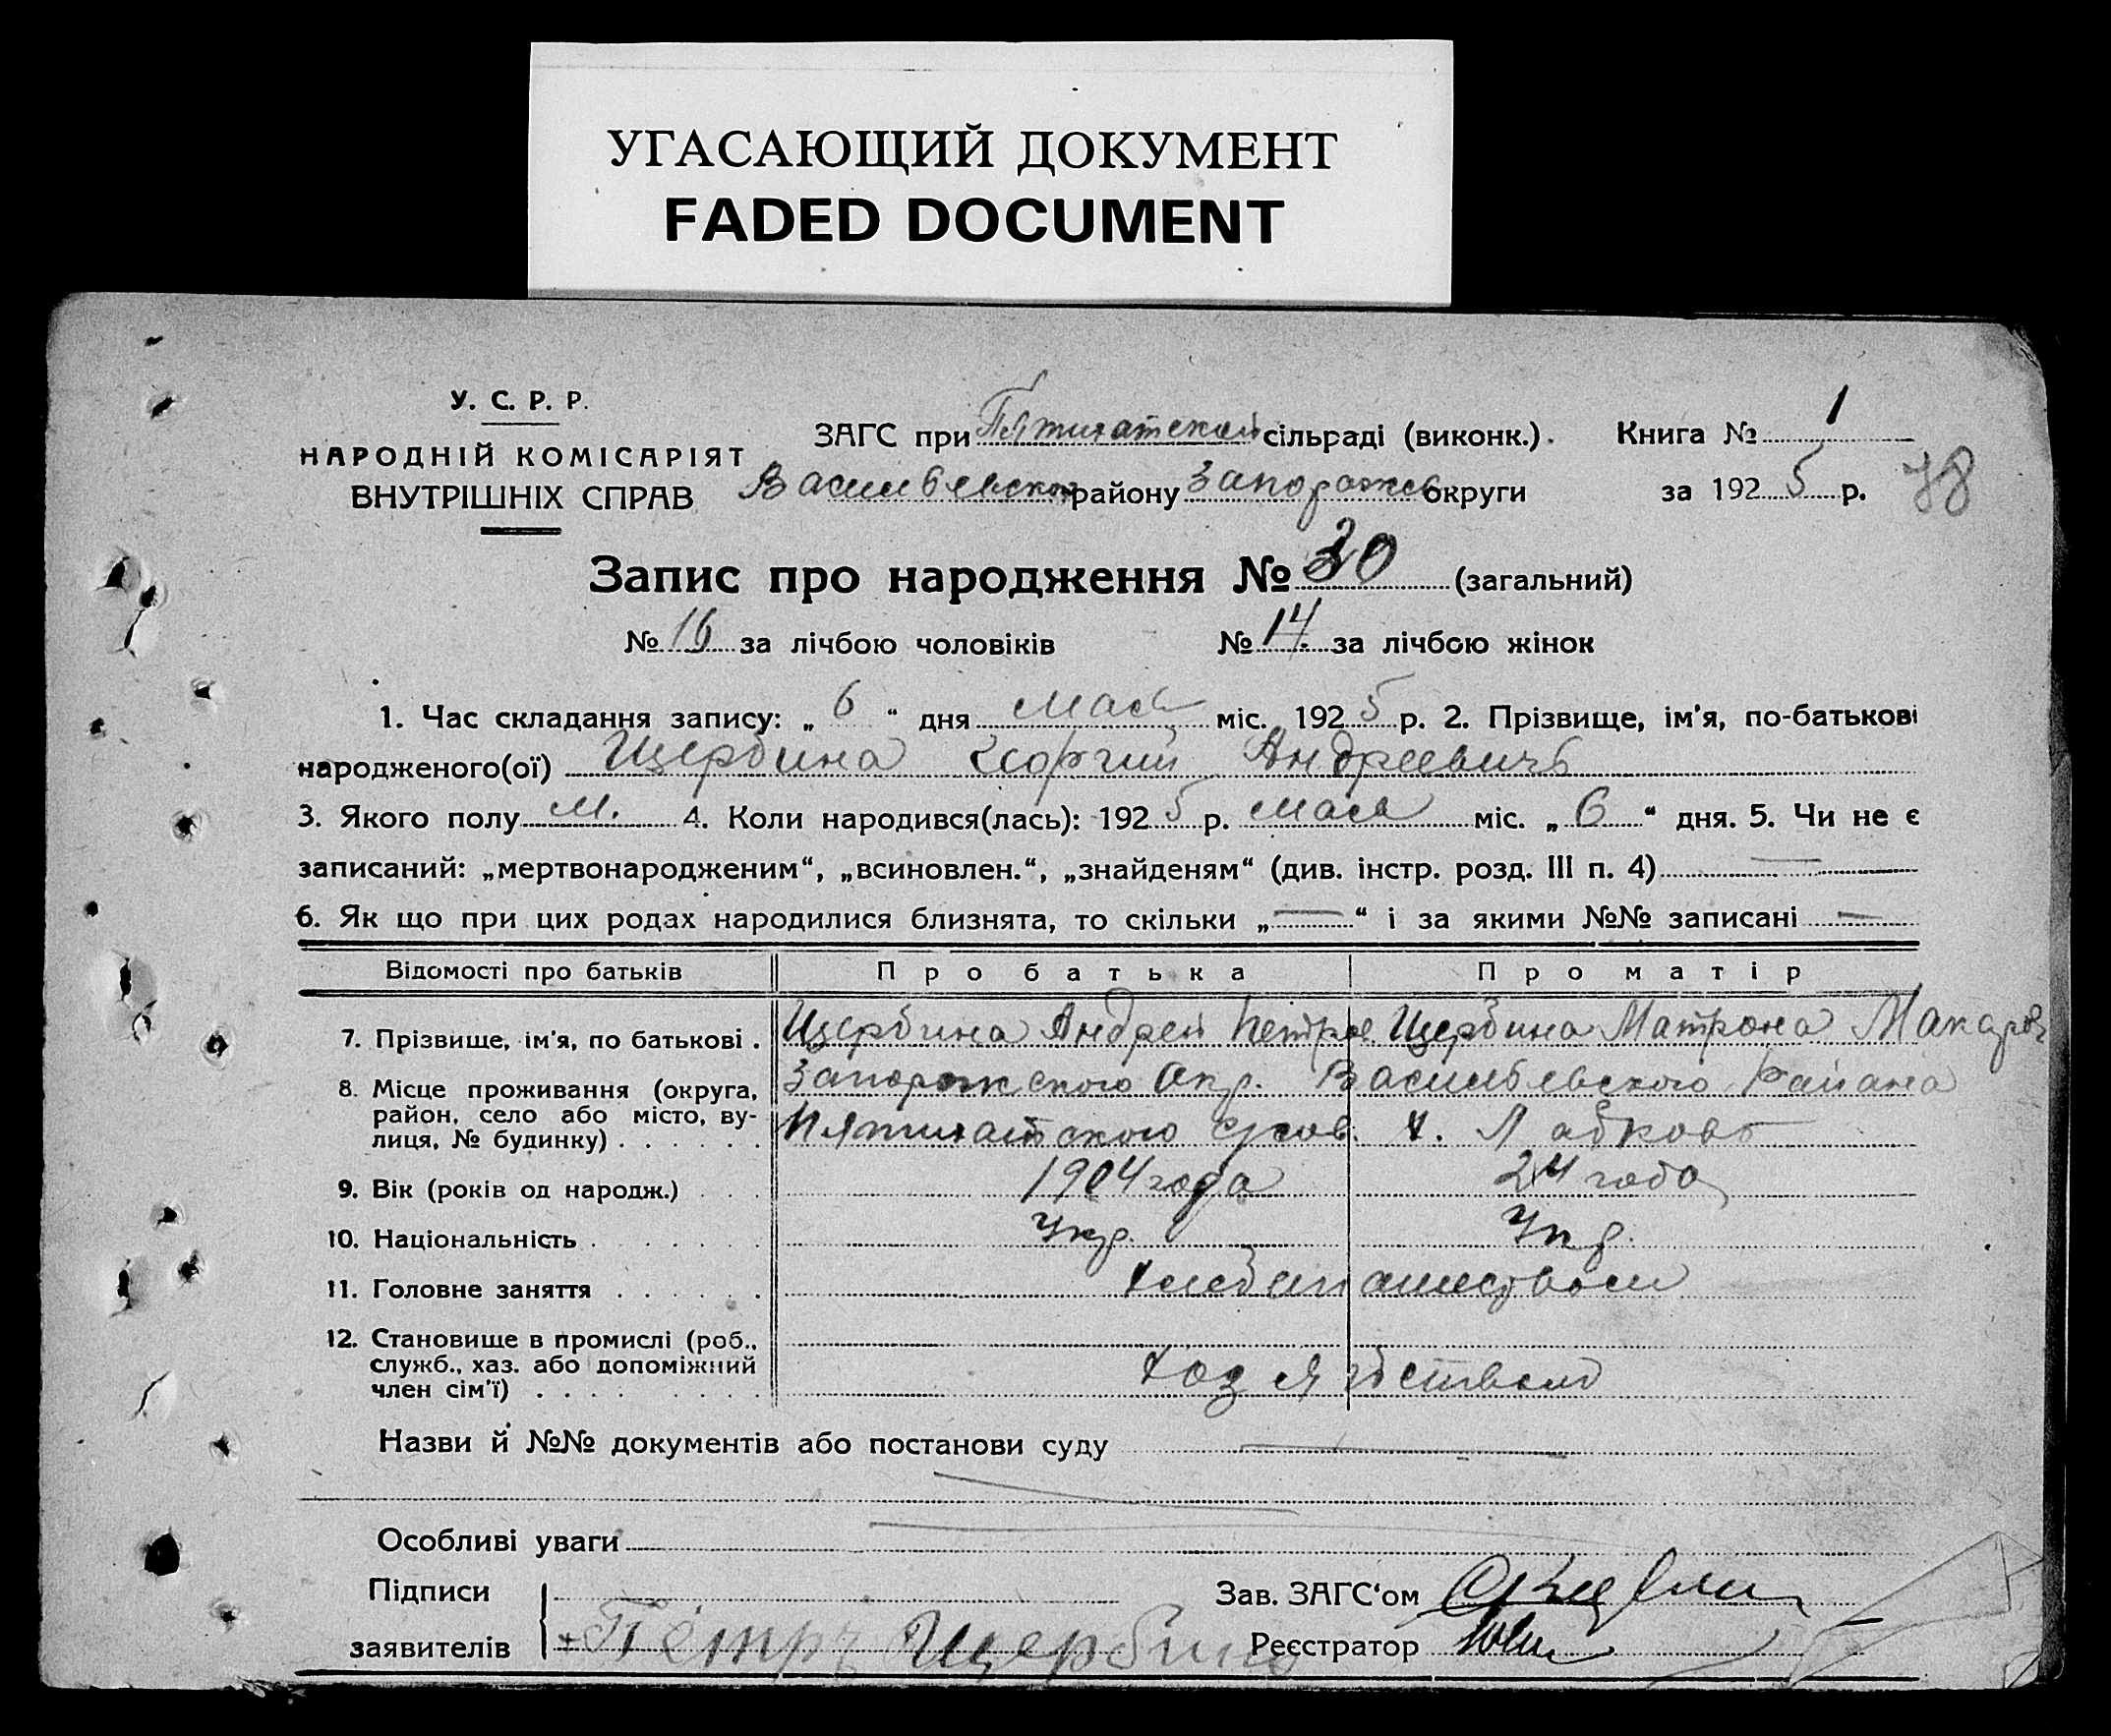 УГАСАЮЩИЙ ДОКУМЕНТ
FADED DOCUMENT
У. С. Р. Р.
НАРОДНІЙ КОМІСАРІЯТ
ВНУТРІШНІХ СПРАВ
ЗАГС при Пятихатской сільраді (виконк.). Книга № 1
Васильевского району Запорожск округи за 1925 р. 78
Запис про народження № 30 (загальний)
№ 16 за лічбою чоловіків № 14. за лічбою жінок
1. Час складання запису: „ 6 “ дня мая міс. 1925 р. 2. Прізвище, ім'я, по-батькові
народженого(ої) Щербина Георгий Андреевичъ
3. Якого полу м. 4. Коли народився(лась): 1925 р. мая міс. „ 6 “ дня. 5. Чи не є
записаний: „мертвонародженим“, „всиновлен.“, „знайденям“ (див. інстр. розд. III п. 4) —
6. Як що при цих родах народилися близнята, то скільки „ — “ і за якими №№ записані —
Відомості про батьків Про батька Про матір
7. Прізвище, ім'я, по батькові . Щербина Андрей Петров. Щербина Матрона Макаров
8. Місце проживання (округа, Запорожского Окр. Васильевского Района
район, село або місто, ву-
лиця, № будинку) . . . . . . Пятихатского х.
9. Вік (років од народж.) . . . 1904 года 24 года
10. Національність . . . . . . Укр. Укр.
11. Головне заняття . . . . . . хлебопашеством
12. Становище в промислі (роб.,
служб., хаз. або допоміжний
член сім'ї) . . . . . . . хозяйством
Назви й №№ документів або постанови суду —
Особливі уваги
Підписи Зав. ЗАГС'ом
заявителів Петръ Щербина Реєстратор